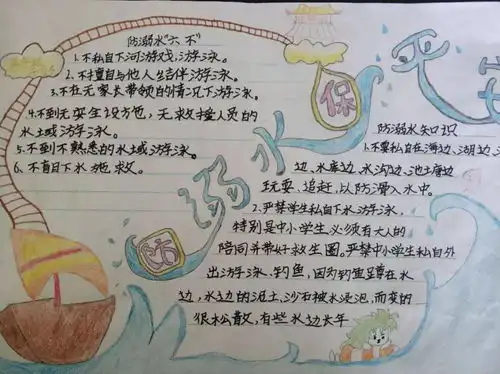 防溺水“六不”
1.不私自下河游戏、游泳。
2.不擅自与他人结伴游泳。
3.不在无家长带领的情况下游泳。
4.不到无安全设施，无救援人员的
水土域游泳。
5.不到不熟悉的水土域游泳。
6、不盲目下水施救。
防溺水
保平安
防溺水知识
1.不要私自在海边、湖边、
边、水库边、水沟边、池土唐边
玩耍、追赶，以防滑入水中。
2.严禁学生私自下水游泳，
特别是中小学生必须有大人的
陪同并带好救生圈。严禁中小学生私自外
出游泳、钓鱼，因为钓鱼蹲在水
边，水边的泥土、沙石被水浸泡，而变的
很松散，有些水边长年